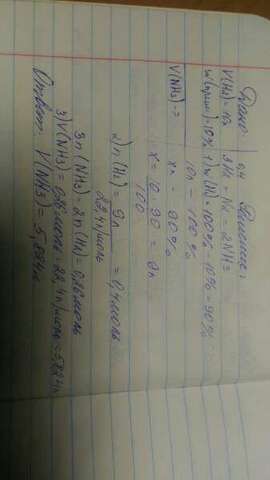 Дано: Решение:
V(H2) = 10л 3H2 + N2 = 2NH3
w(прим) = 10% 1) w(H2) = 100% - 10% = 90%
V(NH3) - ?
10л - 100%
xл - 90%
x = 10 · 90 / 100 = 9л
2) n(H2) = 9л / 22,4л/моль = 0,4моль
3n(NH3) = 2n(H2) = 0,26моль
3) V(NH3) = 0,26моль · 22,4л/моль = 5,824л
Ответ: V(NH3) = 5,824л